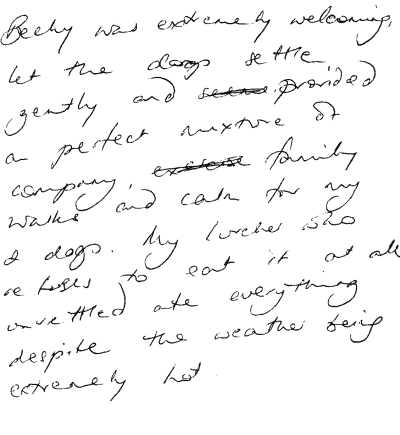 Becky was extremely welcoming,
let the dogs settle
gently and provided
a perfect mixture of
company, family
walks and calm for my
2 dogs. My lurcher who
refuses to eat if at all
unsettled ate everything
despite the weather being
extremely hot